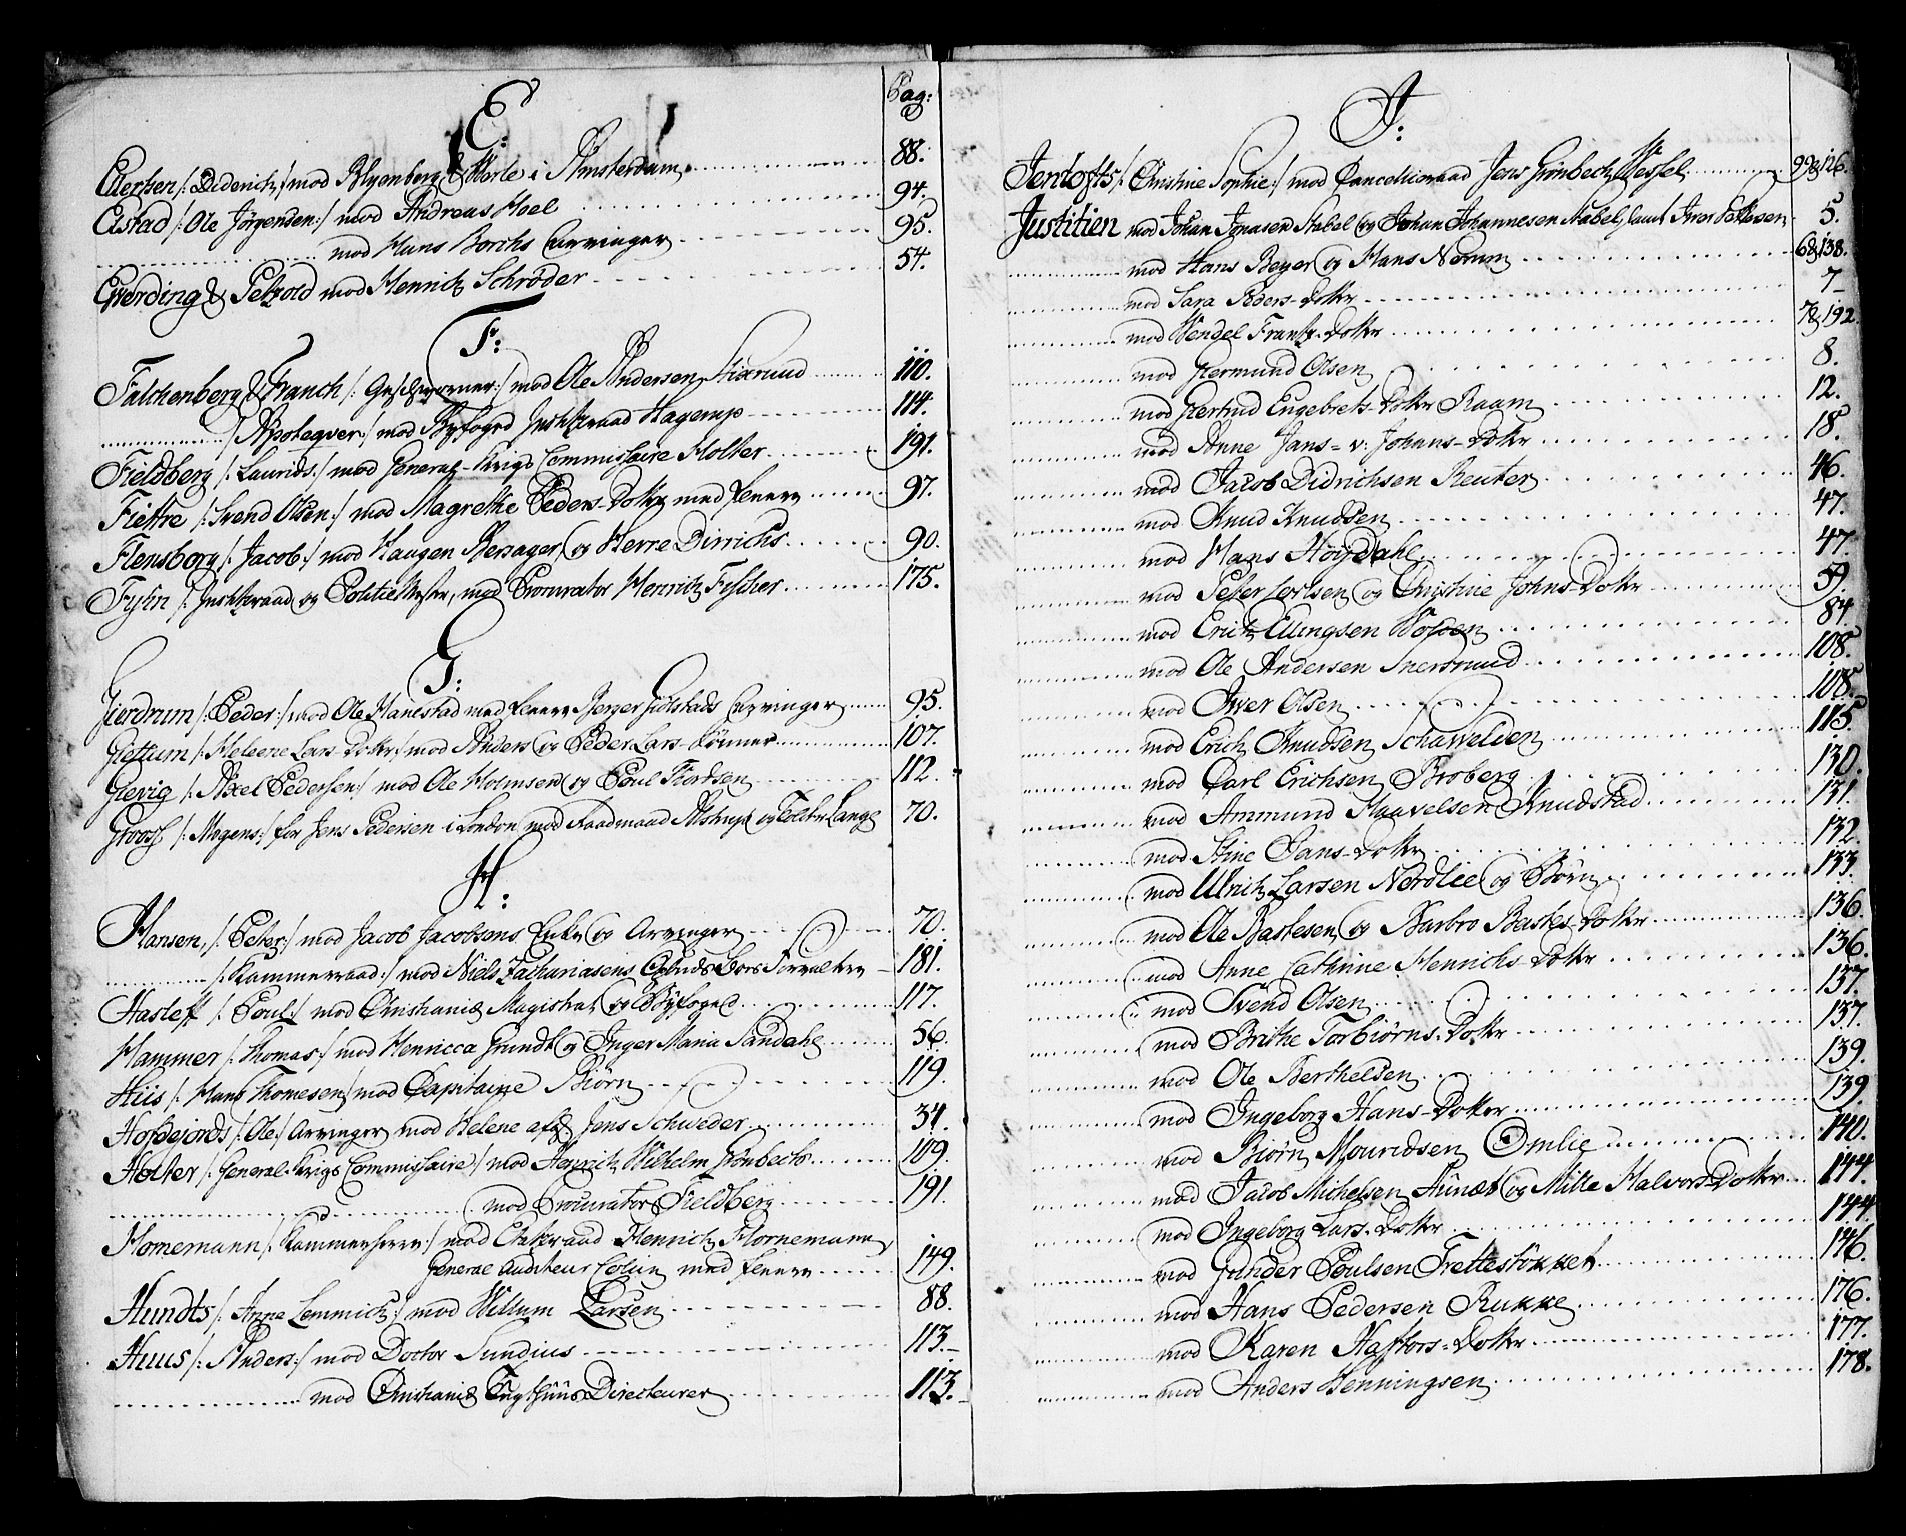 Pag:
E:
Eiersen /: Diderich :/ mod Blyenberg & Merle i Amsterdam. 88.
Elstad /: Ole Jörgensen :/ mod Andreas Moel 94.
mod Hans Borchs Arvinger 95.
Everding & Petzold mod Henrich Schröder 54.
F:
Falchenberg & Franch /: Geschworner :/ mod Ole Andersen Stixrud 110.
/: Apoteqver :/ mod Byfoged Justitzraad Hagerup 114.
Fieldberg /: Laurids :/ mod General-Krigs Commissaire Holter 191.
Fiettre /: Svend Olsen :/ mod Magrethe Peders-Dotter med fleere 97.
Flensborg /: Jacob :/ mod Haagen Bersager og Herre Dirrichs 90.
Fysin /: Justitzraad og Politie Mester, mod Procurator Henrich Fischer 175.
G:
Gierdrum /: Peder :/ mod Ole Hanestad med fleere Berger Giølstads Arvinger 95.
Gettum /: Heleene Lars-Dotter :/ mod Anders og Peder Lars-Sønner 107.
Gievig /: Axel Pedersen :/ mod Ole Holmsen og Poul Fiordsen 112.
Groosh /: Mogens :/ for Jens Pedersen i London mod Raadmand Alstrup og Tolder Lange 70.
H:
Hansen, /: Peter :/ mod Jacob Jacobsens Enke og Arvinger 70.
/: Kammerraad :/ mod Niels Zachariasens Opbuds Boes Forvaltere 181.
Hasleff /: Poul :/ mod Christianiæ Magistrat og Byfoged 117.
Hammer /: Thomas :/ mod Henricca Grundt og Inger Maria Sandahl 56.
Hiis /: Hans Thomesen :/ mod Capitaine Biørn 119.
Hofdejords /: Ole :/ Arvinger mod Helene afg Jens Schweder 34.
Holter /: General-Krigs Commissaire :/ mod Henrich Wilhelm Grønbech 109.
mod Procurator Fieldberg 191.
Hornemann /: Kammerherre :/ mod Etatsraad Henrich Hornemann,
General Auditeur Colun med fleere 149.
Hundts /: Anne Lemmich :/ mod Willum Larsen 88.
Huus /: Anders :/ mod Doctor Sundius 113.
mod Christianiæ Tugthuus Directeurer 113.
J:
Jentofts /: Christine Sophie :/ mod Cancellieraad Jens Grønbech Wessel 99 & 126.
Justitien mod Johan Jonasen Nabel og Johan Johannesen Nabel, samt Iver Pettersen 5.
mod Hans Beyer og Hans Norum 6 & 138.
mod Sara Peders-Dotter 7
mod Wendel Frantz-Dotter 7 & 192.
mod Giermund Olsen 8.
mod Giertrud Engebrets-Dotter Raam 12.
mod Anne Jans- v: Johans-Dotter 18.
mod Jacob Didrichsen Reuter 46.
mod Knud Knudsen 47.
mod Hans Høydahl 47
mod Peter Lorsen og Christine Johns-Dotter 59.
mod Erich Ellingsen Wolden 84.
mod Ole Andersen Snersrud 108.
mod Iver Olsen 108.
mod Erich Knudsen Schavelden 115.
mod Carl Erichsen Broberg 130.
mod Ammund Paavelsen Knudstad 131.
mod Stine Jans-Dotter 132.
mod Ulrich Larsen Nordlie og Børn 133.
mod Ole Bastesen og Barbro Bastes-Dotter 136.
mod Anne Cathrine Henrichs-Dotter 136.
mod Svend Olsen 137.
mod Brithe Torbiørns-Dotter 137.
mod Ole Berthelsen 139.
mod Ingeborg Hans-Dotter 139
mod Biørn Mouridsen Omlie 140.
mod Jacob Michelsen Aunæs og Mille Halvors Dotter 144.
mod Ingeborg Lars-Dotter 144
mod Gunder Poulsen Frettestøkket 146.
mod Hans Pedersen Rukke 176.
mod Karen Haftors-Dotter 177.
mod Anders Henningsen 178.